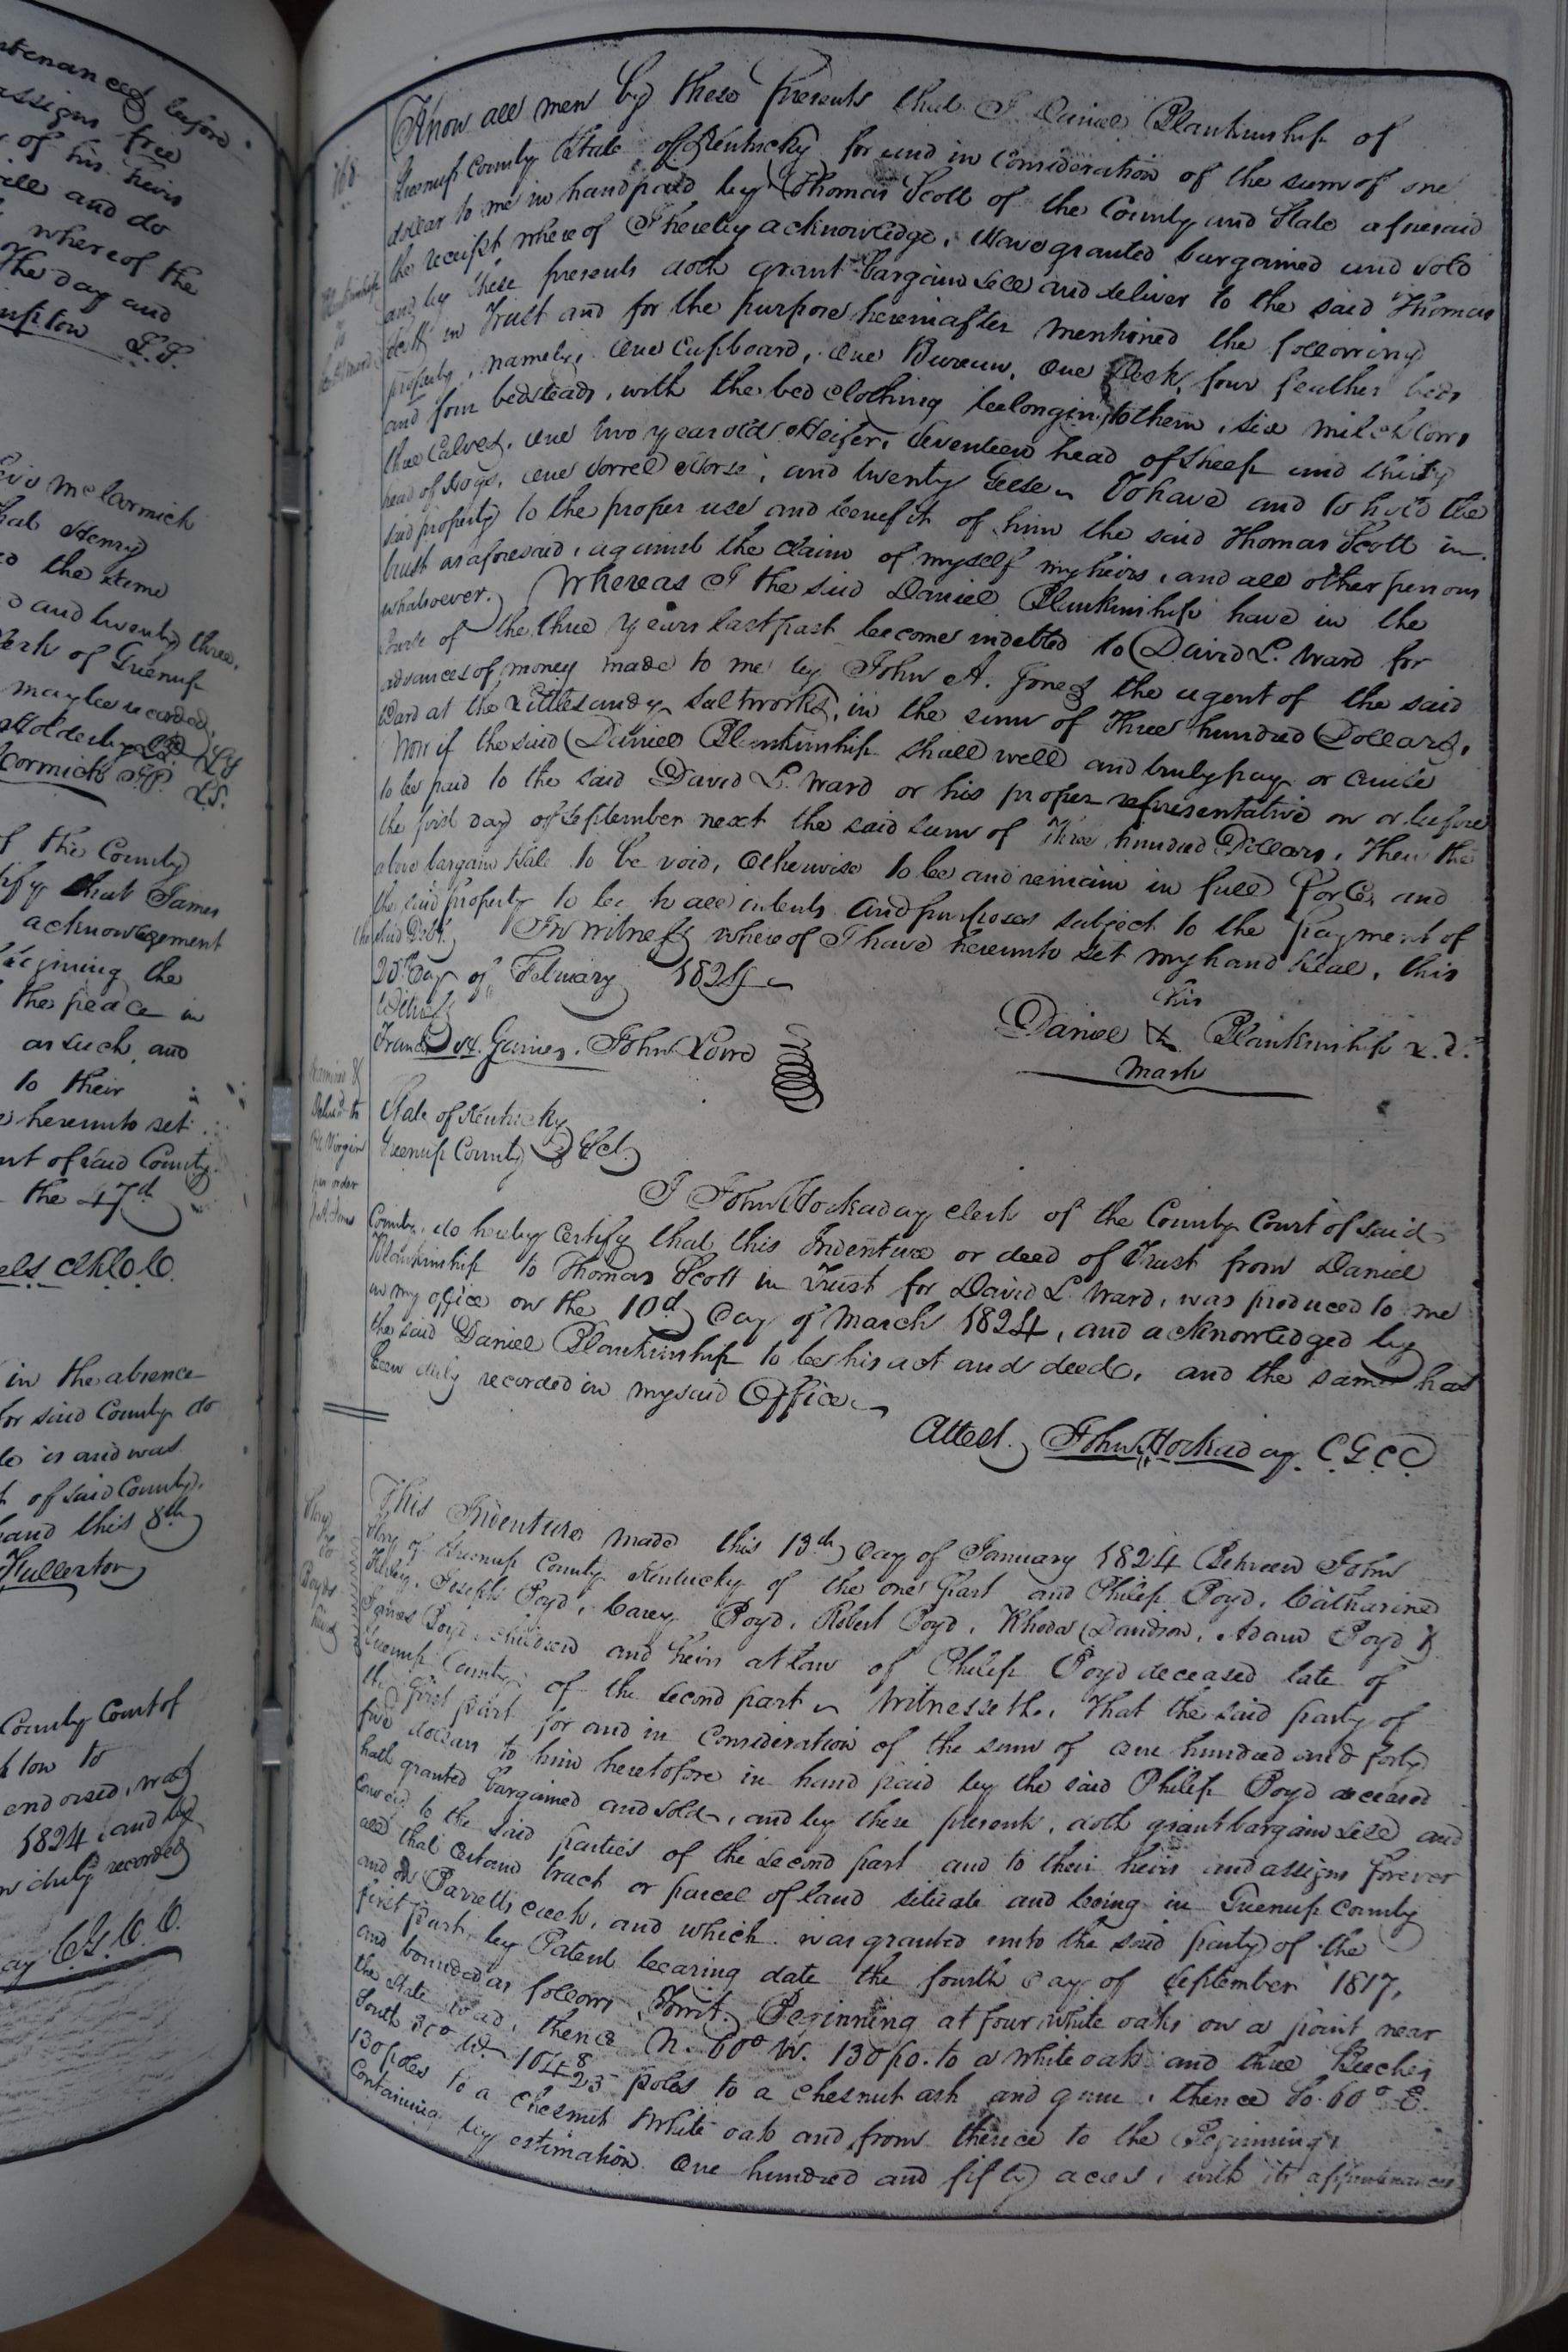 before
assigns free
of his heirs
and do
whereof the
The day and
L.S.
McCormick
that Henry
the same
and twenty three,
Clerk of Greenup
may be recorded,
McCormick
L.S.
of the County
that James
acknowlegement
the
the peace in
as such, and
to their
hereunto set
of said County
the 47th
in the absence
for said County do
is and was
of said County,
hand this 8th
Fullerton
County Court of
to
endorsed, was
1824, and by
duly recorded
C. G. C. C.
168
Blankinship
to
Ward
Know all men by these Presents that I Daniel Blankinship of
Greenup County State of Kentucky for and in Consideration of the sum of one
dollar to me in hand paid by Thomas Scott of the County and State aforesaid
the receipt where of I hereby acknowledge, Have granted bargained and sold
and by these presents doth grant bargain sell and deliver to the said Thomas
Scott in Trust and for the purpose hereinafter mentioned the following
property, namely, One Cupboard, One Bureau, One Desk, four feather beds
and four bedsteads, with the bed clothing belonging to them, six milch Cows
three Calves, One two year old Heifer, Seventeen head of Sheep and thirty
head of Hogs, One Sorrel Horse, and twenty Geese To have and to hold the
said property to the proper use and benefit of him the said Thomas Scott in
trust as aforesaid, against the claim of myself my heirs, and all other persons
whatsoever. Whereas I the said Daniel Blankinship have in the
Course of the three years last past become indebted to David L. Ward for
advances of money made to me by John A. Jones the agent of the said
Ward at the Little Sandy Saltworks, in the sum of Three hundred Dollars,
Now if the said Daniel Blankinship shall well and truly pay or cause
to be paid to the said David L. Ward or his proper representative on or before
the first day of September next the said sum of Three hundred Dollars, Then the
above bargain & Sale to be void, Otherwise to be and remain in full Force and
the said Property to be to all intents and purposes subject to the payment of
the said Debt. In Witness where of I have hereunto set my hand & Seal, this
28th Day of February 1824
Witness
Francis H. Gaines. John Lowd
his
Daniel X Blankinship L.S.
mark
Examined &
Deliv'd to
per order
State of Kentucky
Greenup County Sct.
I John Hockaday clerk of the County Court of said
County, do hereby certify that this Indenture or deed of Trust from Daniel
Blankinship to Thomas Scott in Trust for David L. Ward, was produced to me
in my office on the 10th Day of March 1824, and acknowledged by
the said Daniel Blankinship to be his act and deed, and the same has
been duly recorded in my said Office
Attest. John Hockaday C G C C
to
Boyds
heirs
This Indenture made this 13th Day of January 1824 Between John
of Greenup County Kentucky of the one Part and Philip Boyd, Catharine
Joseph Boyd, Carey Boyd, Robert Boyd, Rhoda Davidson, Adam Boyd &
James Boyd children and heirs at law of Philip Boyd deceased late of
Greenup County of the second part Witnesseth, That the said party of
the first part for and in Consideration of the sum of One hundred and forty
five dollars to him heretofore in hand paid by the said Philip Boyd deceased
hath granted bargained and sold, and by these presents, doth grant bargain sell and
convey to the said parties of the second part and to their heirs and assigns forever
all that certain tract or parcel of land situate and being in Greenup County
and on Barretts creek, and which was granted unto the said party of the
first part, by Patent bearing date the fourth day of September 1817,
and bounded as follows, Towit, Beginning at four white oaks on a point near
the State road, thence N. 60° W. 130 po. to a white oak and three Beeches
South 30° W. 104 8/25 poles to a chesnut ash and gum, thence So. 60° E.
130 poles to a chesnut white oak and from thence to the Beginning,
Containing by estimation One hundred and fifty acres, with its appurtenances